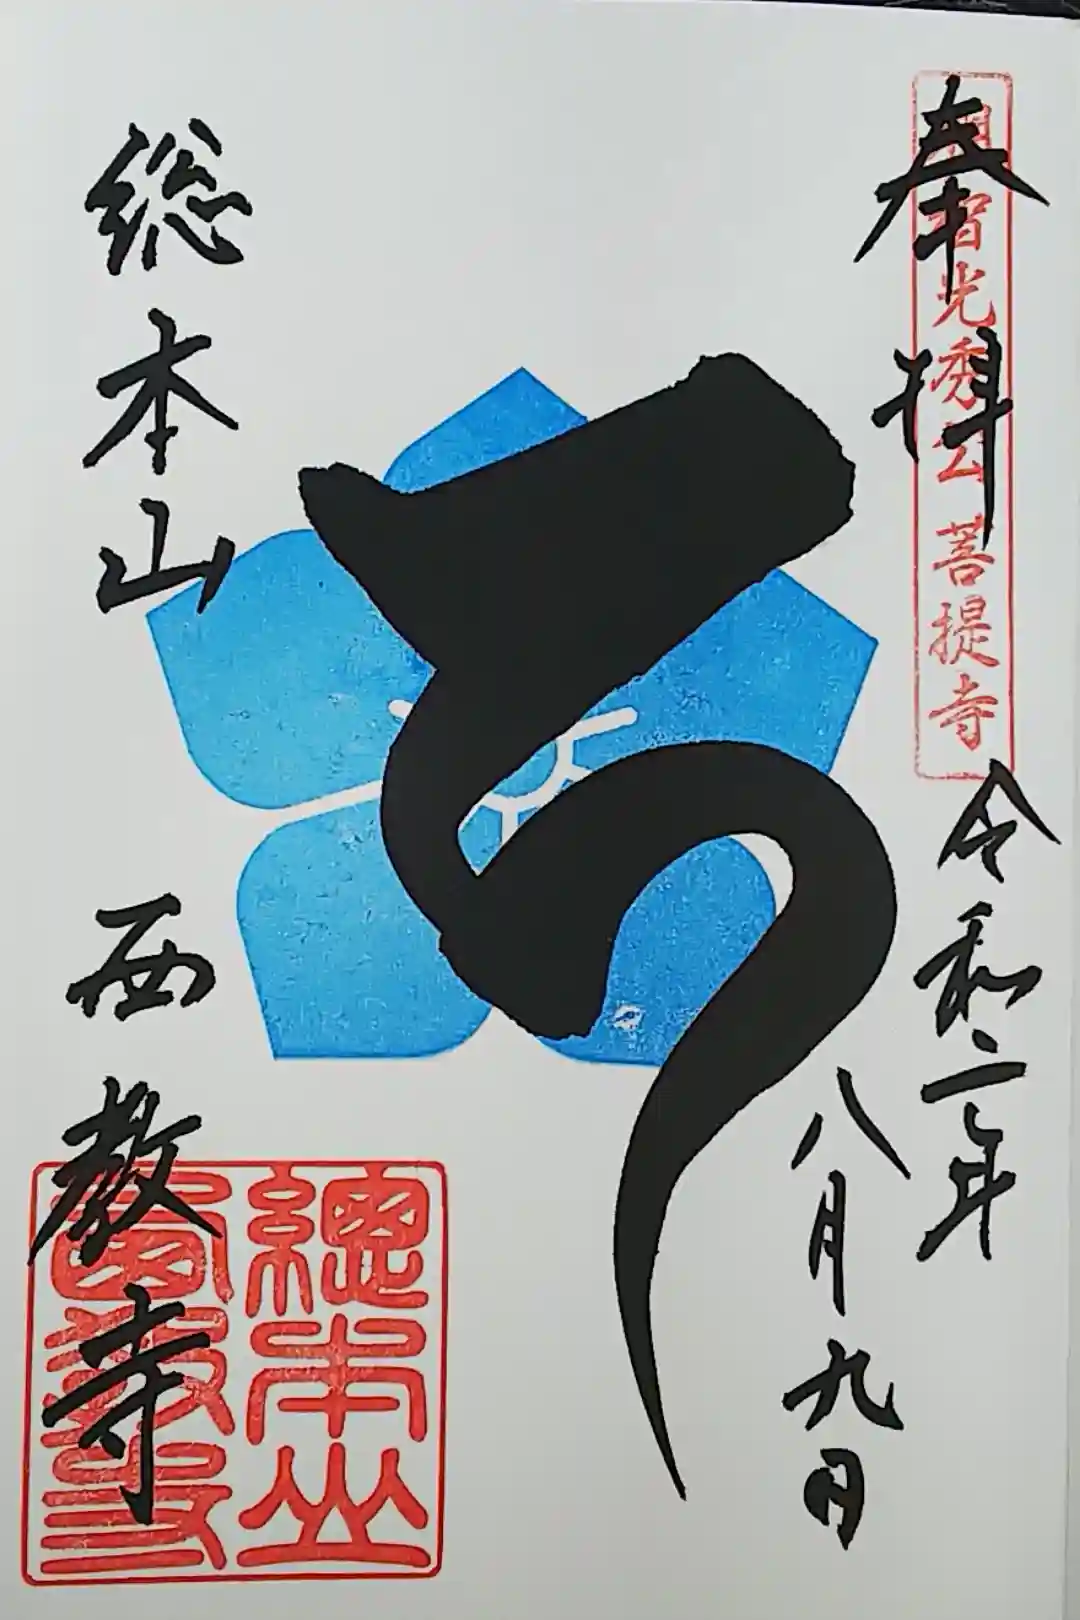 奉拝
明智光秀公菩提寺
令和二年
八月九日
総本山
西教寺
總本山
西教寺